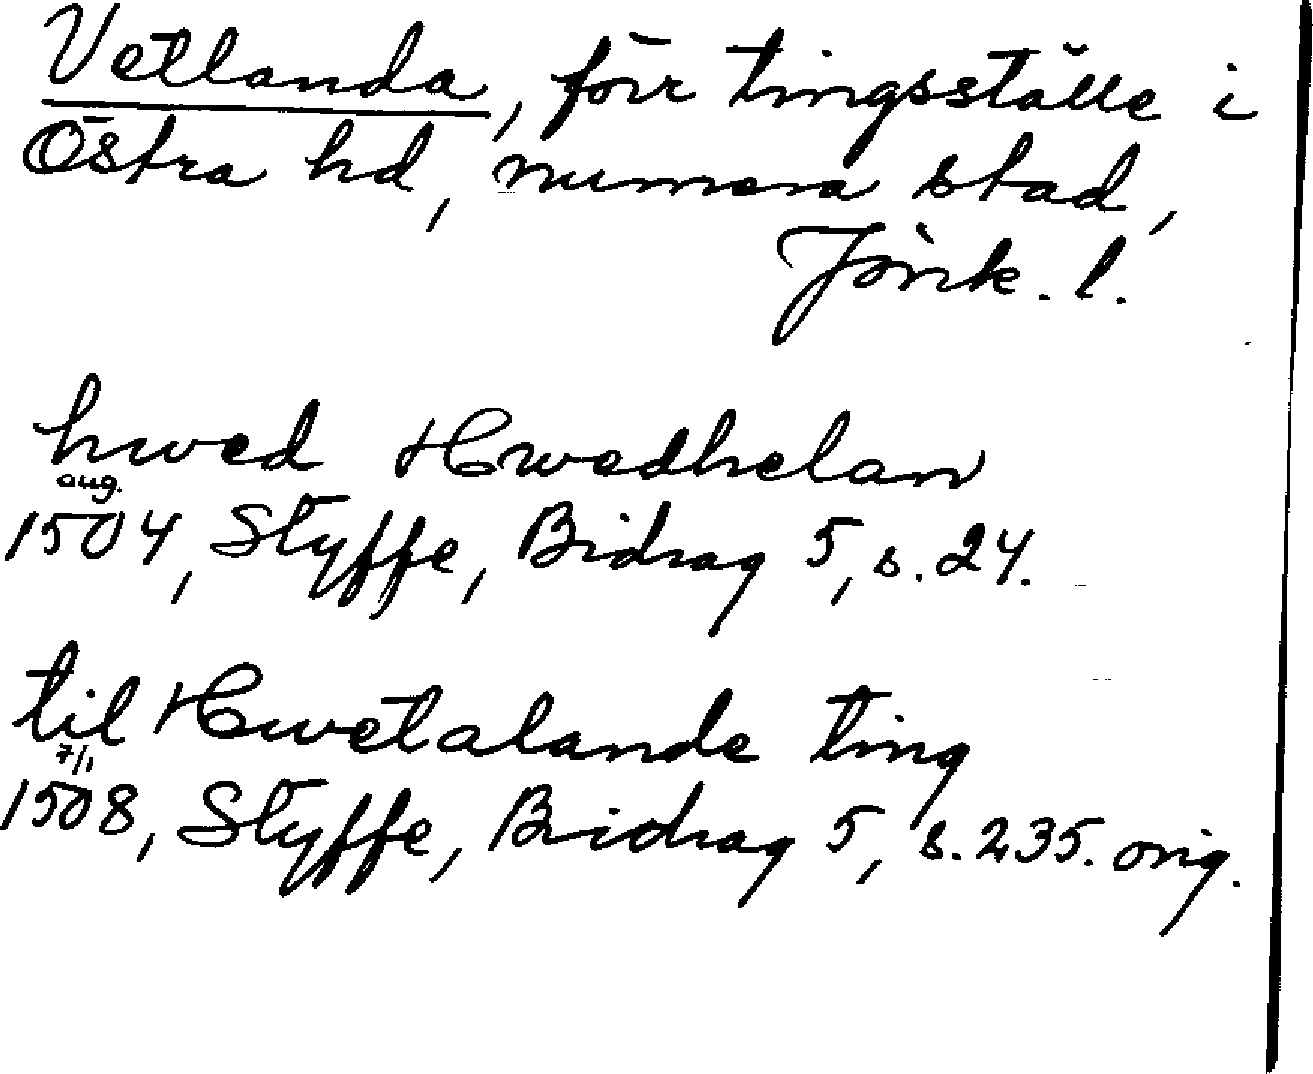 Vetlanda, förr tingsställe i
Östra hd, numera stad,
Jönk. l.
hwed Hwedhelan
aug.
1504, Styffe, Bidrag 5, s. 24.
til Hwetalande ting
7/1
1508, Styffe, Bidrag 5, s. 235. orig.